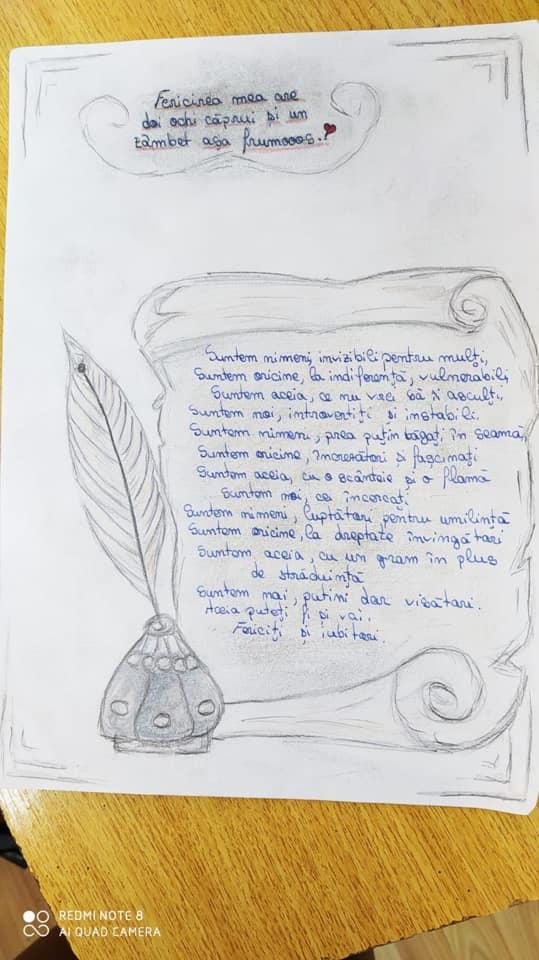 Fericirea mea are
doi ochi căprui și un
zâmbet așa frumooos.
Suntem nimeni, invizibili pentru mulți,
Suntem oricine, la indiferență, vulnerabili,
Suntem aceia, ce nu vrei să îi asculți,
Suntem noi, introvertiți și instabili.
Suntem nimeni, prea puțin băgați în seama,
Suntem oricine, încrezători și fascinați
Suntem aceia, cu o scânteie și o flamă
Suntem noi, cei încercați
Suntem nimeni, luptători pentru umilință
Suntem oricine, la dreptate învingători
Suntem, aceia, cu un gram în plus
de străduință
Suntem noi, puțini dar visători.
Aceia puteți fi și voi.
Fericiți și iubitori.
REDMI NOTE 8
AI QUAD CAMERA